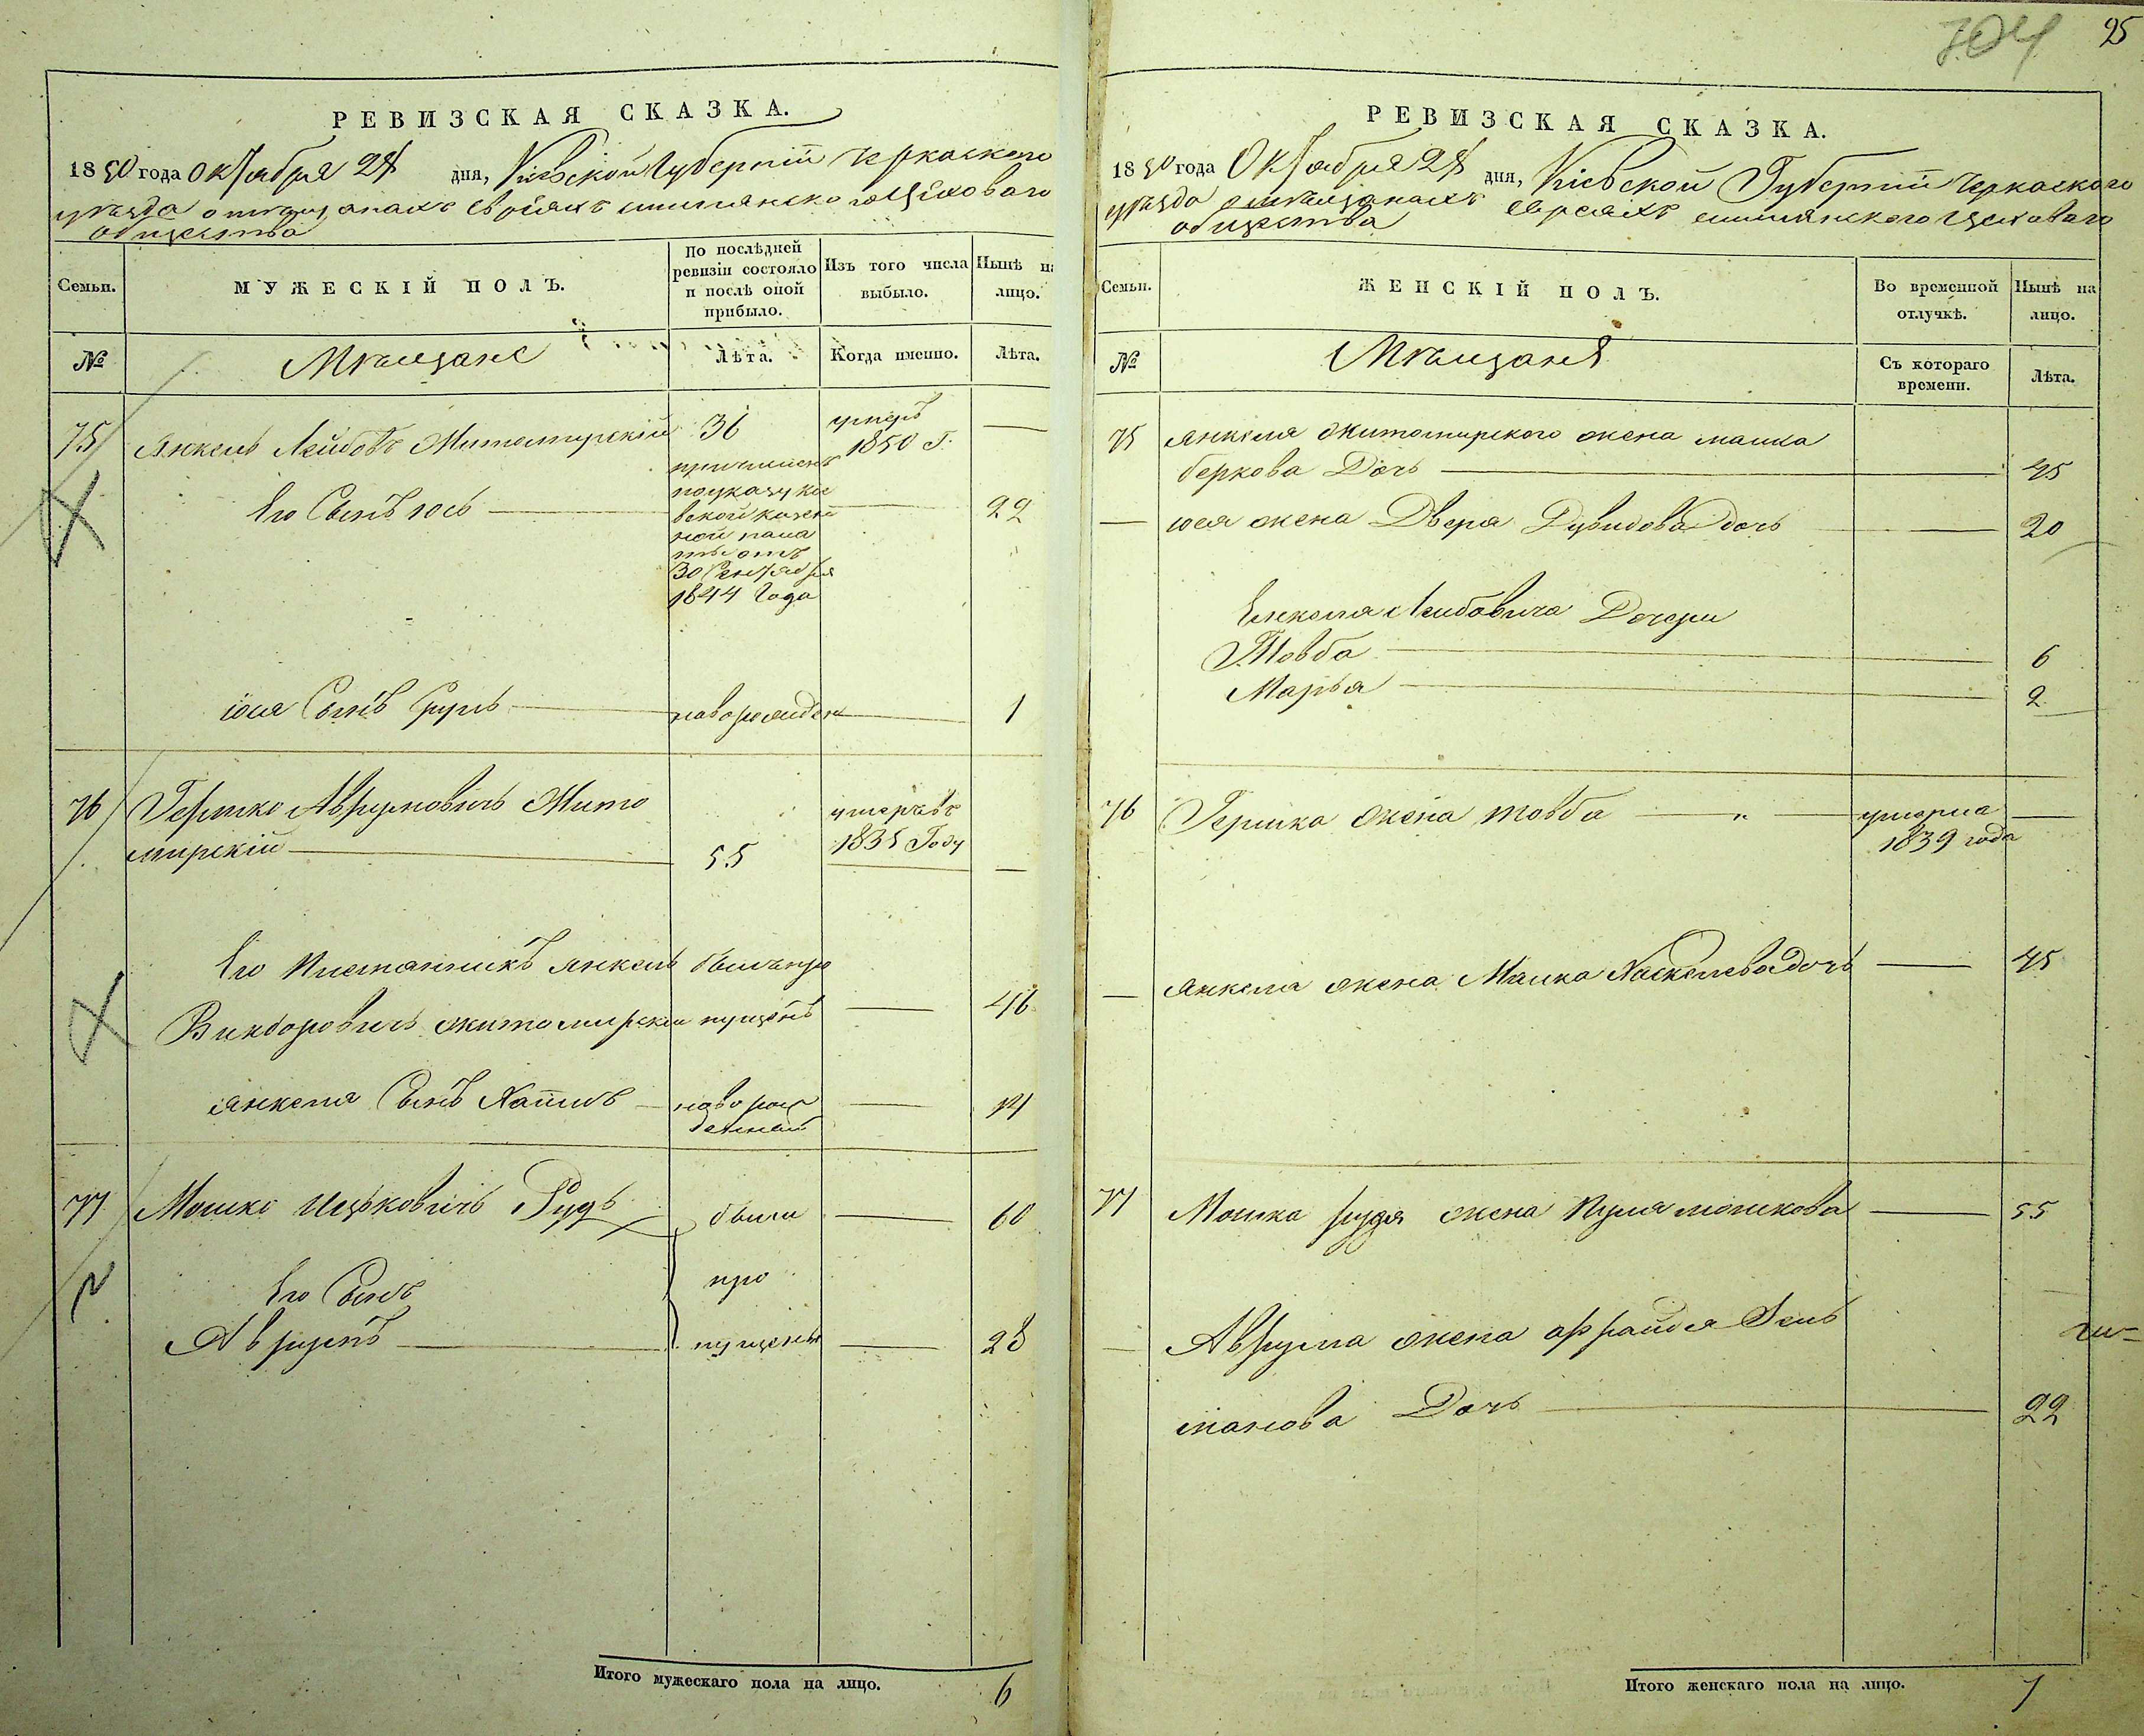 РЕВИЗСКАЯ СКАЗКА.
1850 года Октября 24 дня, Кіевской Губерніи Черкаского
уезда о мещанахъ евреяхъ смилянского цеховаго
общества
Семьи.
МУЖЕСКІЙ ПОЛЪ.
По послѣдней
ревизіи состояло
и послѣ оной
прибыло.
Изъ того числа
выбыло.
Нынѣ на
лицо.
№
Мѣщане
Лѣта.
Когда именно.
Лѣта.
75
Янкель Лейбовъ Житомирскій
36
умеръ
1850 Г.
—
Его Сынъ Іось
причисленъ
по указу кіе
вской казен
ной пала
ты отъ
30 Сентября
1844 Года
22
Іося Сынъ Сруль
новорожден
1
76
Гершко Аврумовичь Жито
мирскій
55
умеръ въ
1835 Году
—
Его Племянникъ Янкель
былъ про
Викторовичь житомирскій
пущенъ
46
Янкеля Сынъ Хаимъ
новорож
денный
14
77
Мошко Ицьковичь Рудь
были
60
Его Сынъ
про
Аврумъ
пущены
28
Итого мужескаго пола на лицо.
6
704
25
РЕВИЗСКАЯ СКАЗКА.
1850 года Октября 24 дня, Кіевской Губерніи Черкаского
уезда о мещанахъ евреяхъ смилянского цеховаго
общества
Семьи.
ЖЕНСКІЙ ПОЛЪ.
Во временной
отлучкѣ.
Нынѣ на
лицо.
№
Мѣщане
Съ котораго
времени.
Лѣта.
75
Янкеля житомирского жена малка
беркова Дочь
45
—
Іося жена Двера Дувидова дочь
20
Янкеля Лейбовича Дочери
Товба
6
Марья
2
76
Гершка жена товба
умерла
1839 года
—
—
Янкеля жена Малка Хаскелева дочь
45
77
Мошка рудя жена Перля мошкова
55
—
Аврума жена фрайда Зель
манова Дочь
22
Итого женскаго пола на лицо.
7